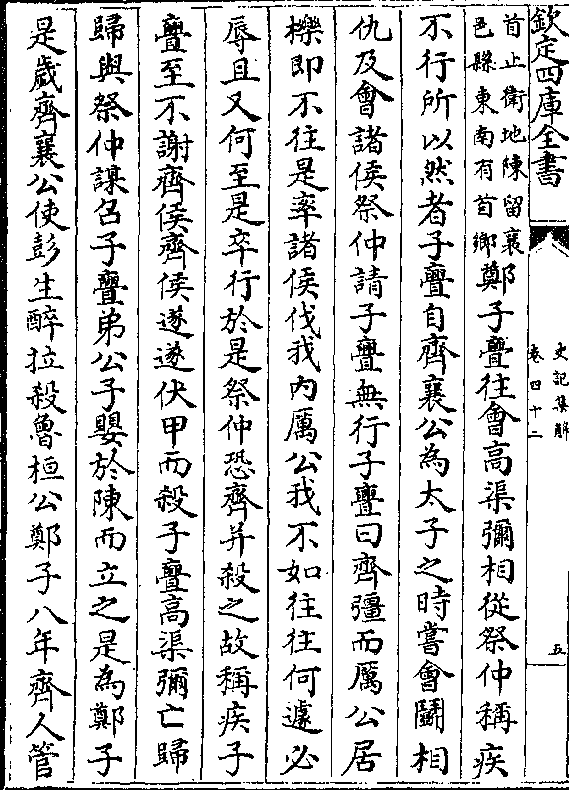 欽定四庫全書
史記集解
卷四十二
五
首止衛地陳留襄
邑縣東南有首鄉
鄭子亹往會高渠彌相從祭仲稱疾
不行所以然者子亹自齊襄公為太子之時嘗會鬭相
仇及會諸侯祭仲請子亹無行子亹曰齊彊而厲公居
櫟即不往是率諸侯伐我内厲公我不如往往何遽必
辱且又何至是卒行於是祭仲恐齊并殺之故稱疾子
亹至不謝齊侯齊侯遂遂伏甲而殺子亹高渠彌亡歸
歸與祭仲謀召子亹弟公子嬰於陳而立之是為鄭子
是歲齊襄公使彭生醉拉殺魯桓公鄭子八年齊人管